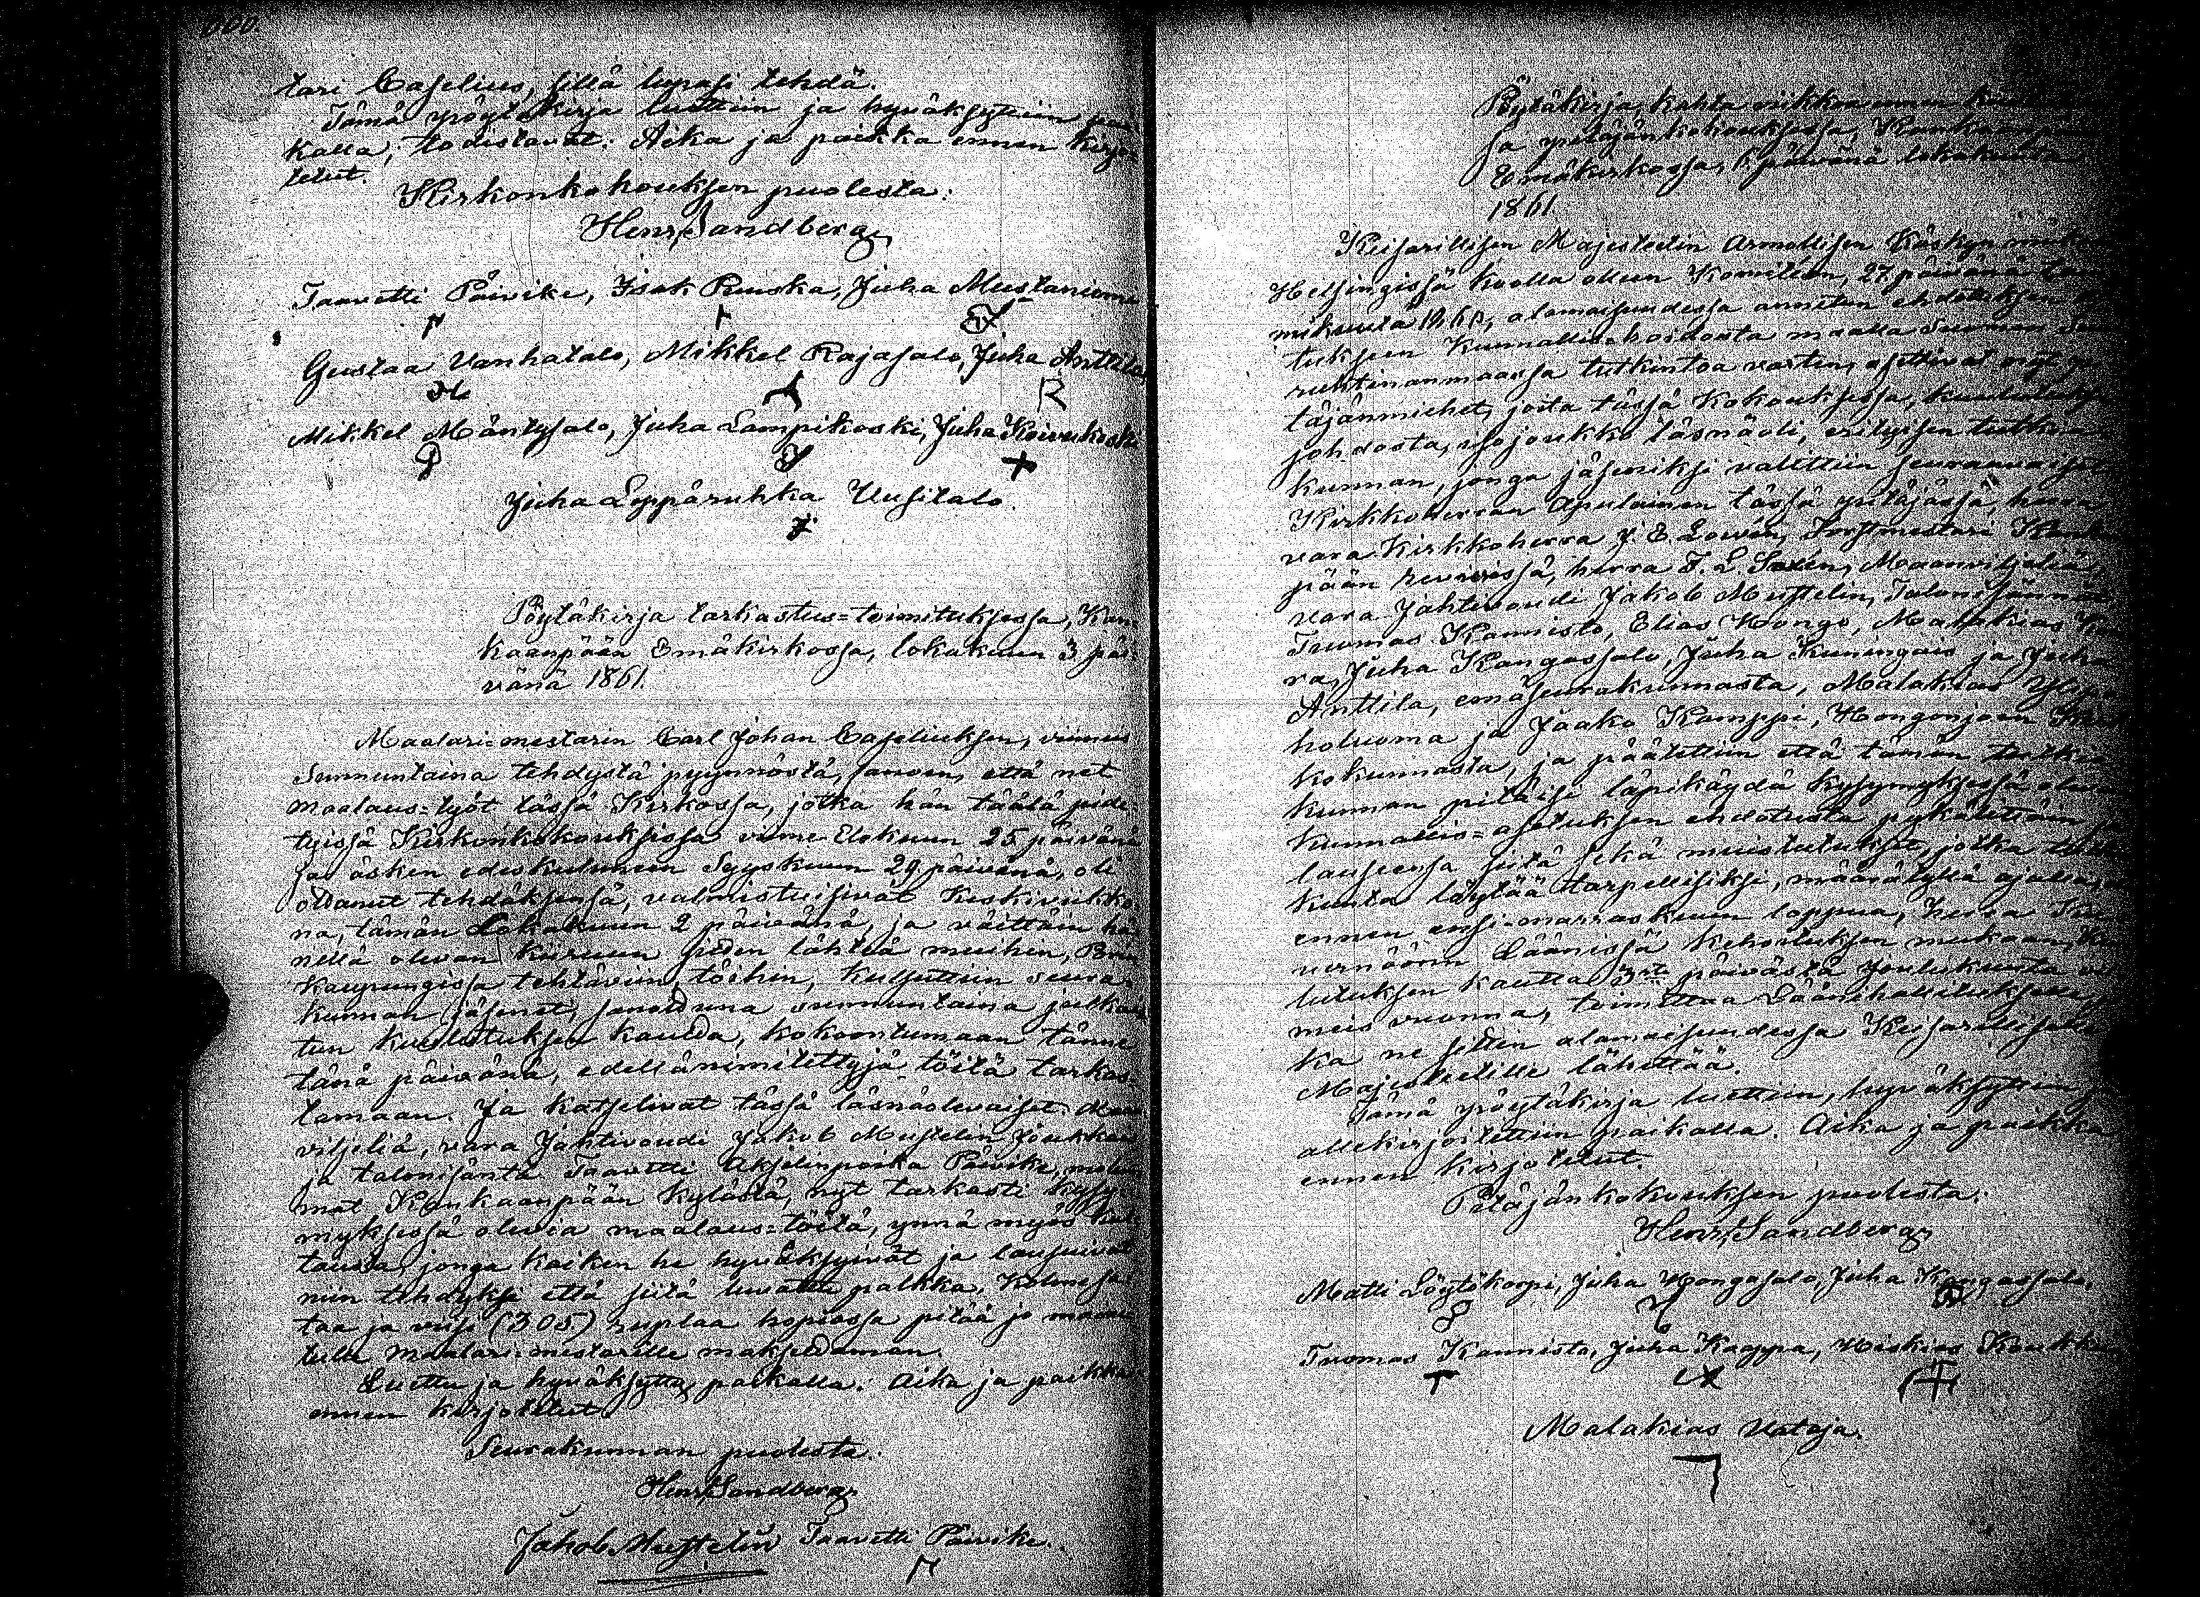 tari Caselius, sillä lupasi tehdä.
Tämä pöytäkirja luettiin ja hyväksyttiin pai-
kalla; todistavat: Aika ja paikka ennen kirjo-
tetut.
Kirkonkokouksen puolesta:
Henr, Sandberg,
Taavetti Päivike, Isak Ruuska, Juha Mustaniemi
Gustaa Vanhatalo, Mikkel Rajasalo, Juha Anttila,
Mikkel Mäntysalo, Juha Lampikoski, Juha Koivukoski
Juha Leppäruhka Uusitalo.
Pöytäkirja tarkastus=toimituksessa, Kan-
kaanpään Emäkirkossa, lokakuun 3 päi-
vänä 1861.
Maalari=mestarin Carl Johan Caseliuksen, viimeis
Sunnuntaina tehdystä pyynnöstä, sanoen, että net
maalaus=työt tässä Kirkossa, jotka hän täälä pide-
tyissä Kirkonkokouksissa viime Elokuun 25 päivänä
ja äsken edeskuluneen Syyskuun 29 päivänä, oli
ottanut tehdäksensä, valmistuisivat Keskiviikko-
na, tämän Lokakuun 2 päivänä, ja väittäin hä-
nellä olevan kiiruun siiden lähteä muihin,
kaupungissa tehtäviin, töihin, kutsuttiin seura-
kunnan jäsenet, sanottuna sunnuntaina julkais-
tun kuulutuksen kautta, kokoontumaan tänne
tänä päivänä, edellänimitettyjä töitä tarkas-
tamaan. Ja katselivat tässä läsnäolevaiset: Maan
viljeliä, vara Jahtivouti Jakob Mustelin Joukken
ja talonisäntä Taavetti Akselinpoika Päivike, molem
mat Kankaanpään kylästä, nyt tarkasti kysy-
myksessä olevia maalaus=töitä, ynnä myös kul-
tausta, jonga kaiken he hyväksyivät ja lausuivat
niin tehdyksi että siitä luvattu palkka, Kolmesa-
taa ja viisi (305) ruplaa hopiassa pitää jo maini
tulle Maalari=mestarille maksettaman.
Luettu ja hyväksytty paikalla: Aika ja paikka
ennen kirjotetut.
Seurakunnan puolesta:
Henr, Sandberg,
Jakob Mustelin Taavetti Päivike.
Pöytäkirja, kahta viikkoa ennen
sa pitäjänkokouksessa, Kankaanpään
Emäkirkossa, 6 päivänä lokakuuta
1861.
Keisarillisen Majesteetin Armollisen Käskyn
Helsingissä koolla olleen Komitean, 27 päivänä
mikuuta 1860, alamaisuudessa annetun ehdotuksen
tukseen Kunnallis=hoidosta maalla Suomen Suu
ruhtinanmaassa tutkintoa varten, asettivat nyt pi
täjänmiehet, joita tässä Kokouksessa, kuulutuksen
johdosta, iso joukko läsnäoli, erityisen tutkin
kunnan, jonga jäseniksi valittiin seuraavaiset
Kirkkoherran Apulainen tässä pitäjässä, herra
vara Kirkkoherra J. E. Lovén, Forstmestari Kankaan
pään reviirissä, herra F. L. Saxén, Maanviljeliä
vara Jahtivouti Jakob Mustelin, Talonisännät
Tuomas Kannisto, Elias Hongo, Malakias
ra, Juha Kangassalo, Juha Kuningais ja Juha
Anttila, emäseurakunnasta, Malakias
holuoma ja Jaako Kamppi, Hongonjoen
kokunnasta, ja päätettiin että tämän tutkin
kunnan pitäisi läpikäydä kysymyksessä olevan
Kunnallis=asetuksen ehdotusta pykälittäin ja
lauseensa siitä sekä muistutukset, jotka
kunta löytää tarpellisiksi, määrätyllä ajalla,
ennen ensi=marraskuun loppua, herra Ku
vernöörin Läänissä kehoituksen mukaan,
lutuksen kautta 3nsta päivästä Joulukuuta
meis vuonna, toimittaa Läänihallitukselle,
ka ne sitten alamaisuudessa Keisarilliselle
Majesteetille lähettää.
Tämä pöytäkirja luettiin, hyväksyttiin ja
allekirjoitettiin paikalla. Aika ja paikka
ennen kirjotetut.
Pitäjänkokouksen puolesta:
Henr, Sandberg,
Matti Löytökorpi, Juha Hongasalo, Juha Kangassalo,
Tuomas Kannisto, Juha Kaappa, Hiskias
Malakias Vataja.